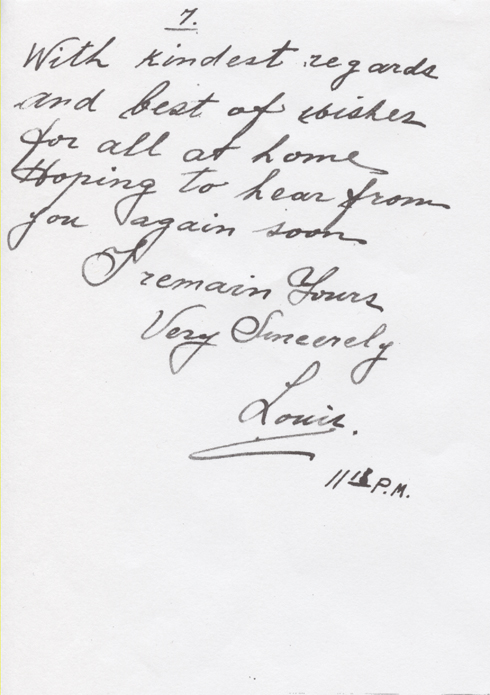 7.
With kindest regards
and best of wishes
for all at home
Hoping to hear from
you again soon
I remain Yours
Very Sincerely
Louis.
11 15 P.M.